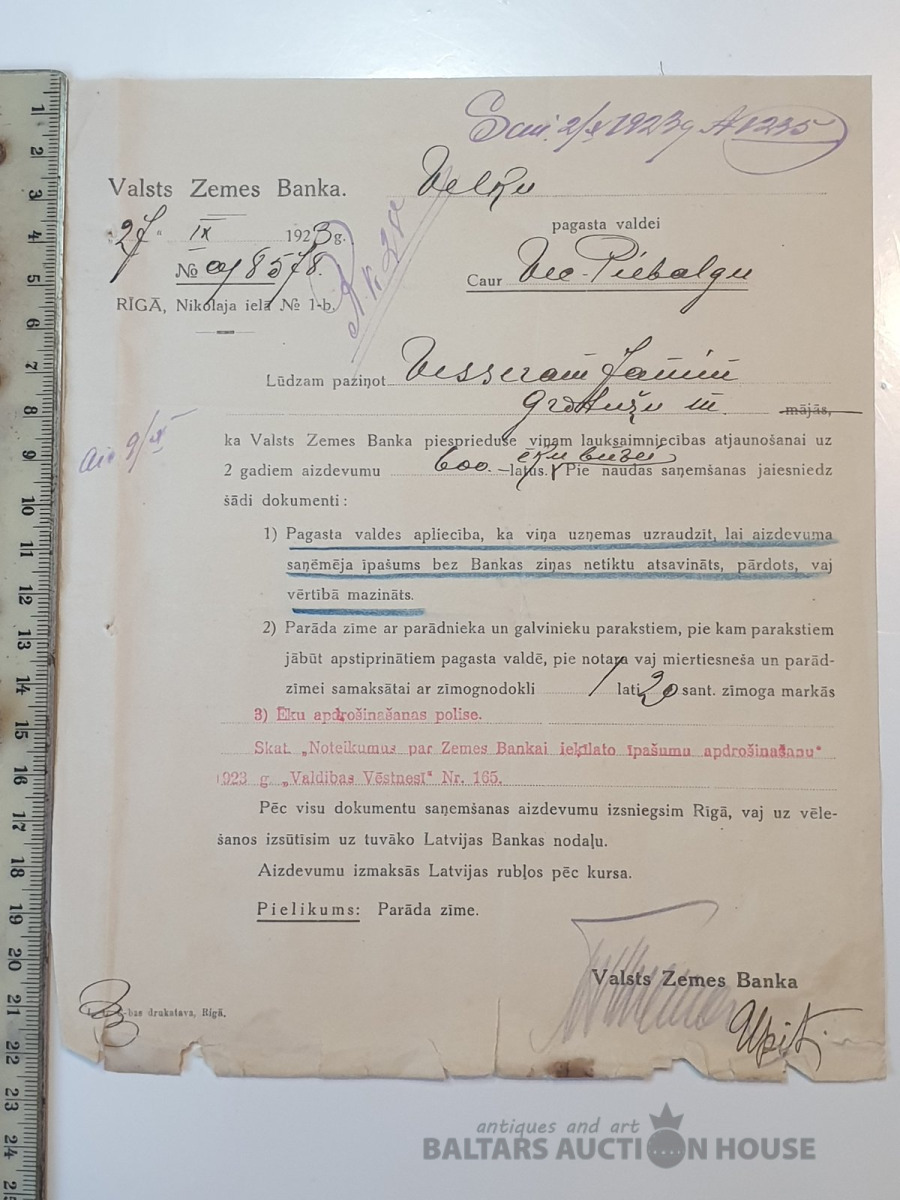 Saņ. 2/X 1923 g A 1235
Valsts Zemes Banka. Velķu
"27" IX 1923 g. pagasta valdei
№ 8578. Caur Vec-Piebalgu
RĪGĀ, Nikolaja ielā № 1-b.
Lūdzam paziņot
mājās,
ka Valsts Zemes Banka piesprieduse viņam lauksaimniecības atjaunošanai uz
ēku būvei
2 gadiem aizdevumu 600.— latus. Pie naudas saņemšanas jaiesniedz
šādi dokumenti:
1) Pagasta valdes apliecība, ka viņa uzņemas uzraudzīt, lai aizdevuma
saņēmēja īpašums bez Bankas ziņas netiktu atsavināts, pārdots, vaj
vērtībā mazināts.
2) Parāda zīme ar parādnieka un galvinieku parakstiem, pie kam parakstiem
jābūt apstiprinātiem pagasta valdē, pie notara vaj miertiesneša un parād-
zīmei samaksātai ar zīmognodokli 1 lati 20 sant. zīmoga markās
3) Ēku apdrošināšanas polise.
Skat. „Noteikumus par Zemes Bankai ieķīlato īpašumu apdrošināšanu"
1923 g. „Valdības Vēstnesī" Nr. 165.
Pēc visu dokumentu saņemšanas aizdevumu izsniegsim Rīgā, vaj uz vēle-
šanos izsūtīsim uz tuvāko Latvijas Bankas nodaļu.
Aizdevumu izmaksās Latvijas rubļos pēc kursa.
Pielikums: Parāda zīme.
Valsts Zemes Banka
drukatava, Rīgā.
antiques and art
BALTARS AUCTION HOUSE
1
2
3
4
5
6
7
8
9
10
11
12
13
14
15
16
17
18
19
20
21
22
23
24